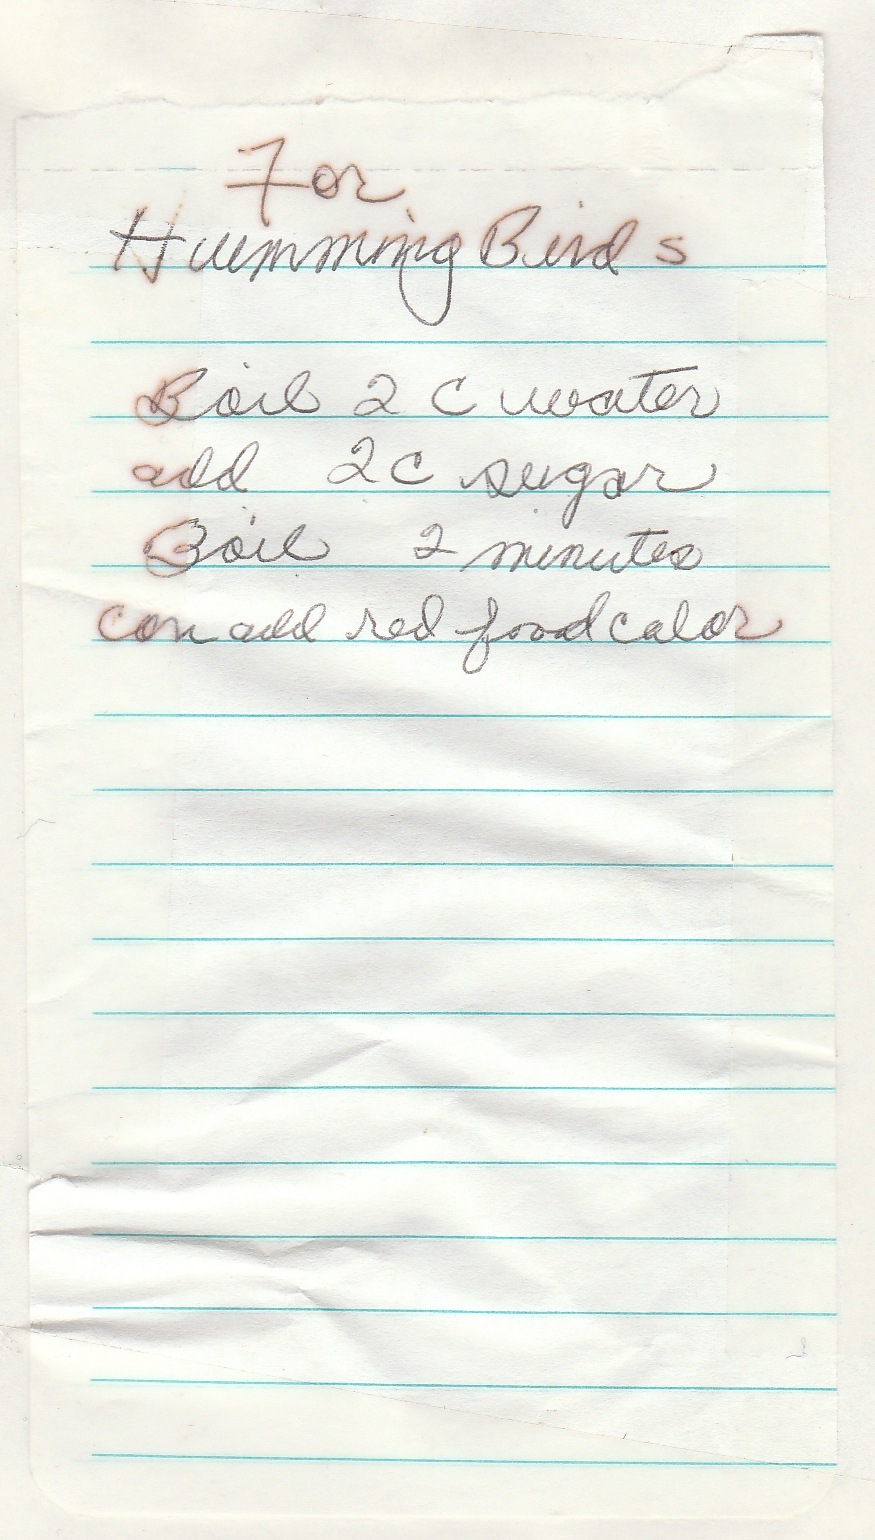 For
Humming Birds
Boil 2 c water
add 2c sugar
Boil 2 minutes
can add red food calor